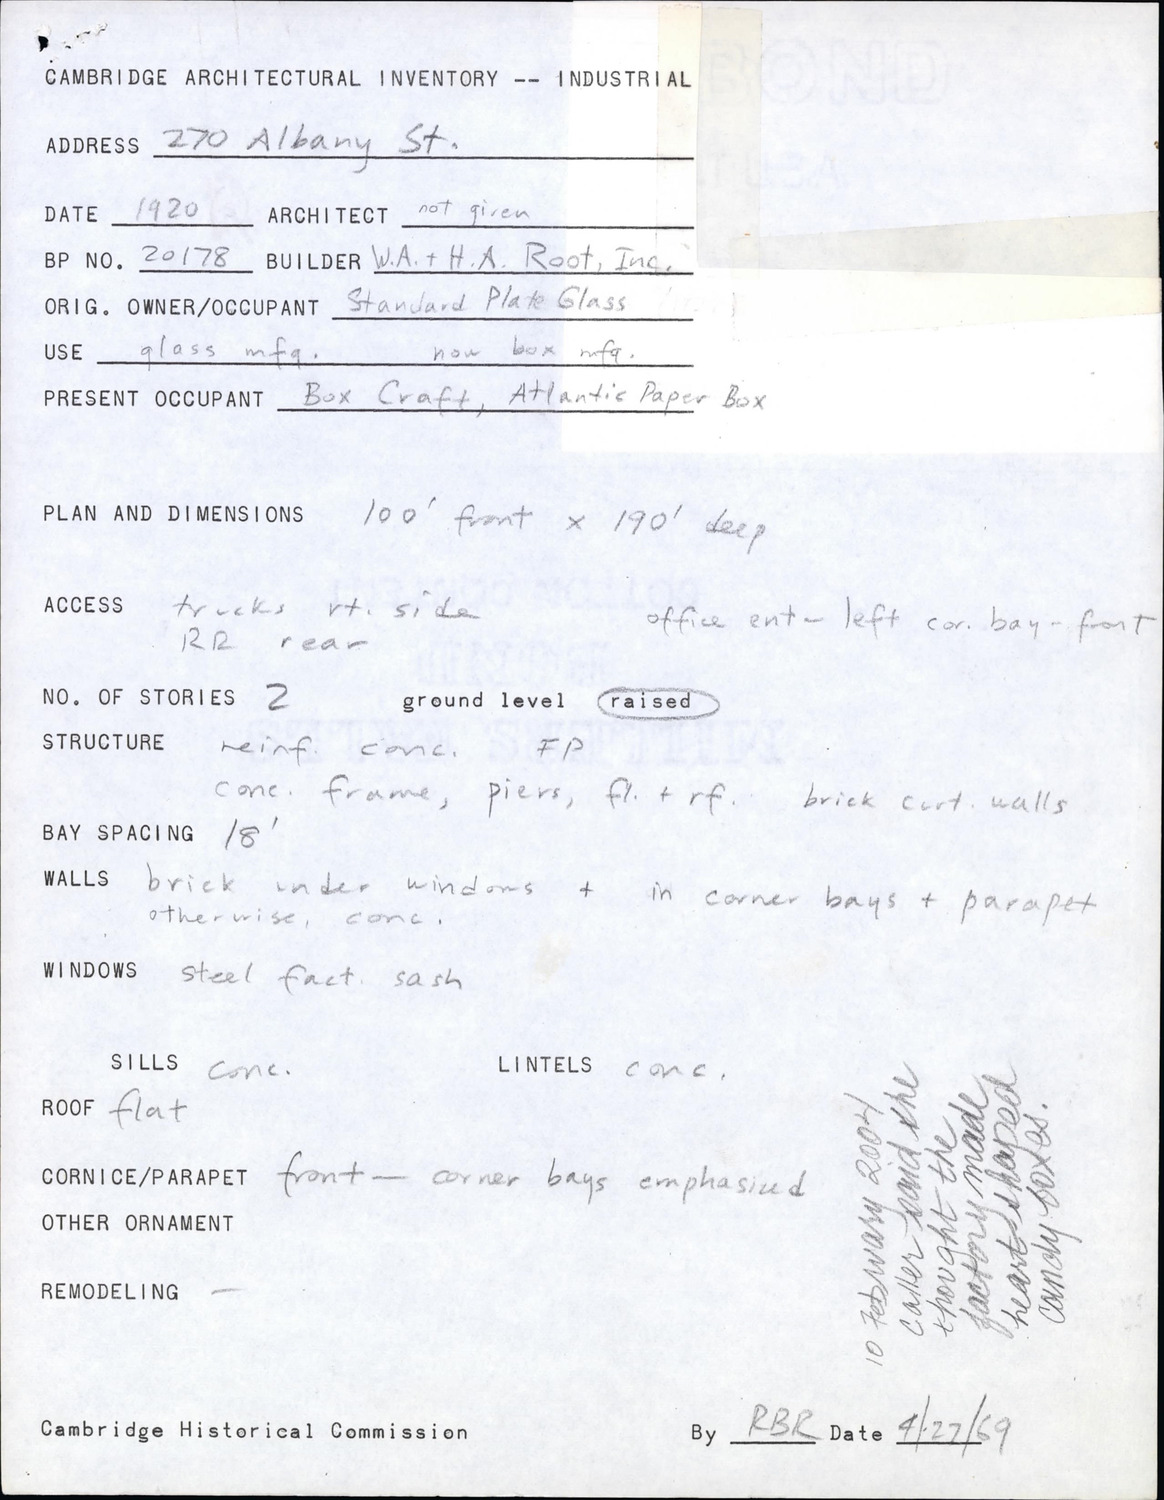 CAMBRIDGE ARCHITECTURAL INVENTORY -- INDUSTRIAL
ADDRESS 270 Albany St.
DATE 1920 ARCHITECT not given
BP NO. 20178 BUILDER W.A. + H.A. Root, Inc.
ORIG. OWNER/OCCUPANT Standard Plate Glass
USE glass mfg. now box mfg.
PRESENT OCCUPANT Box Craft, Atlantic Paper Box
PLAN AND DIMENSIONS 100' front x 190' deep
ACCESS trucks rt. side office ent - left cor. bay - front
RR rear
NO. OF STORIES 2 ground level raised
STRUCTURE reinf. conc. FP
conc. frame, piers, fl. + rf. brick curt. walls
BAY SPACING 18'
WALLS brick under windows + in corner bays + parapet
otherwise, conc.
WINDOWS steel fact. sash
SILLS conc. LINTELS conc.
ROOF flat
CORNICE/PARAPET front — corner bays emphasized
OTHER ORNAMENT
REMODELING —
10 February 2004
caller said she
thought the
factory made
heart-shaped
candy boxes.
Cambridge Historical Commission By RBR Date 4/27/69